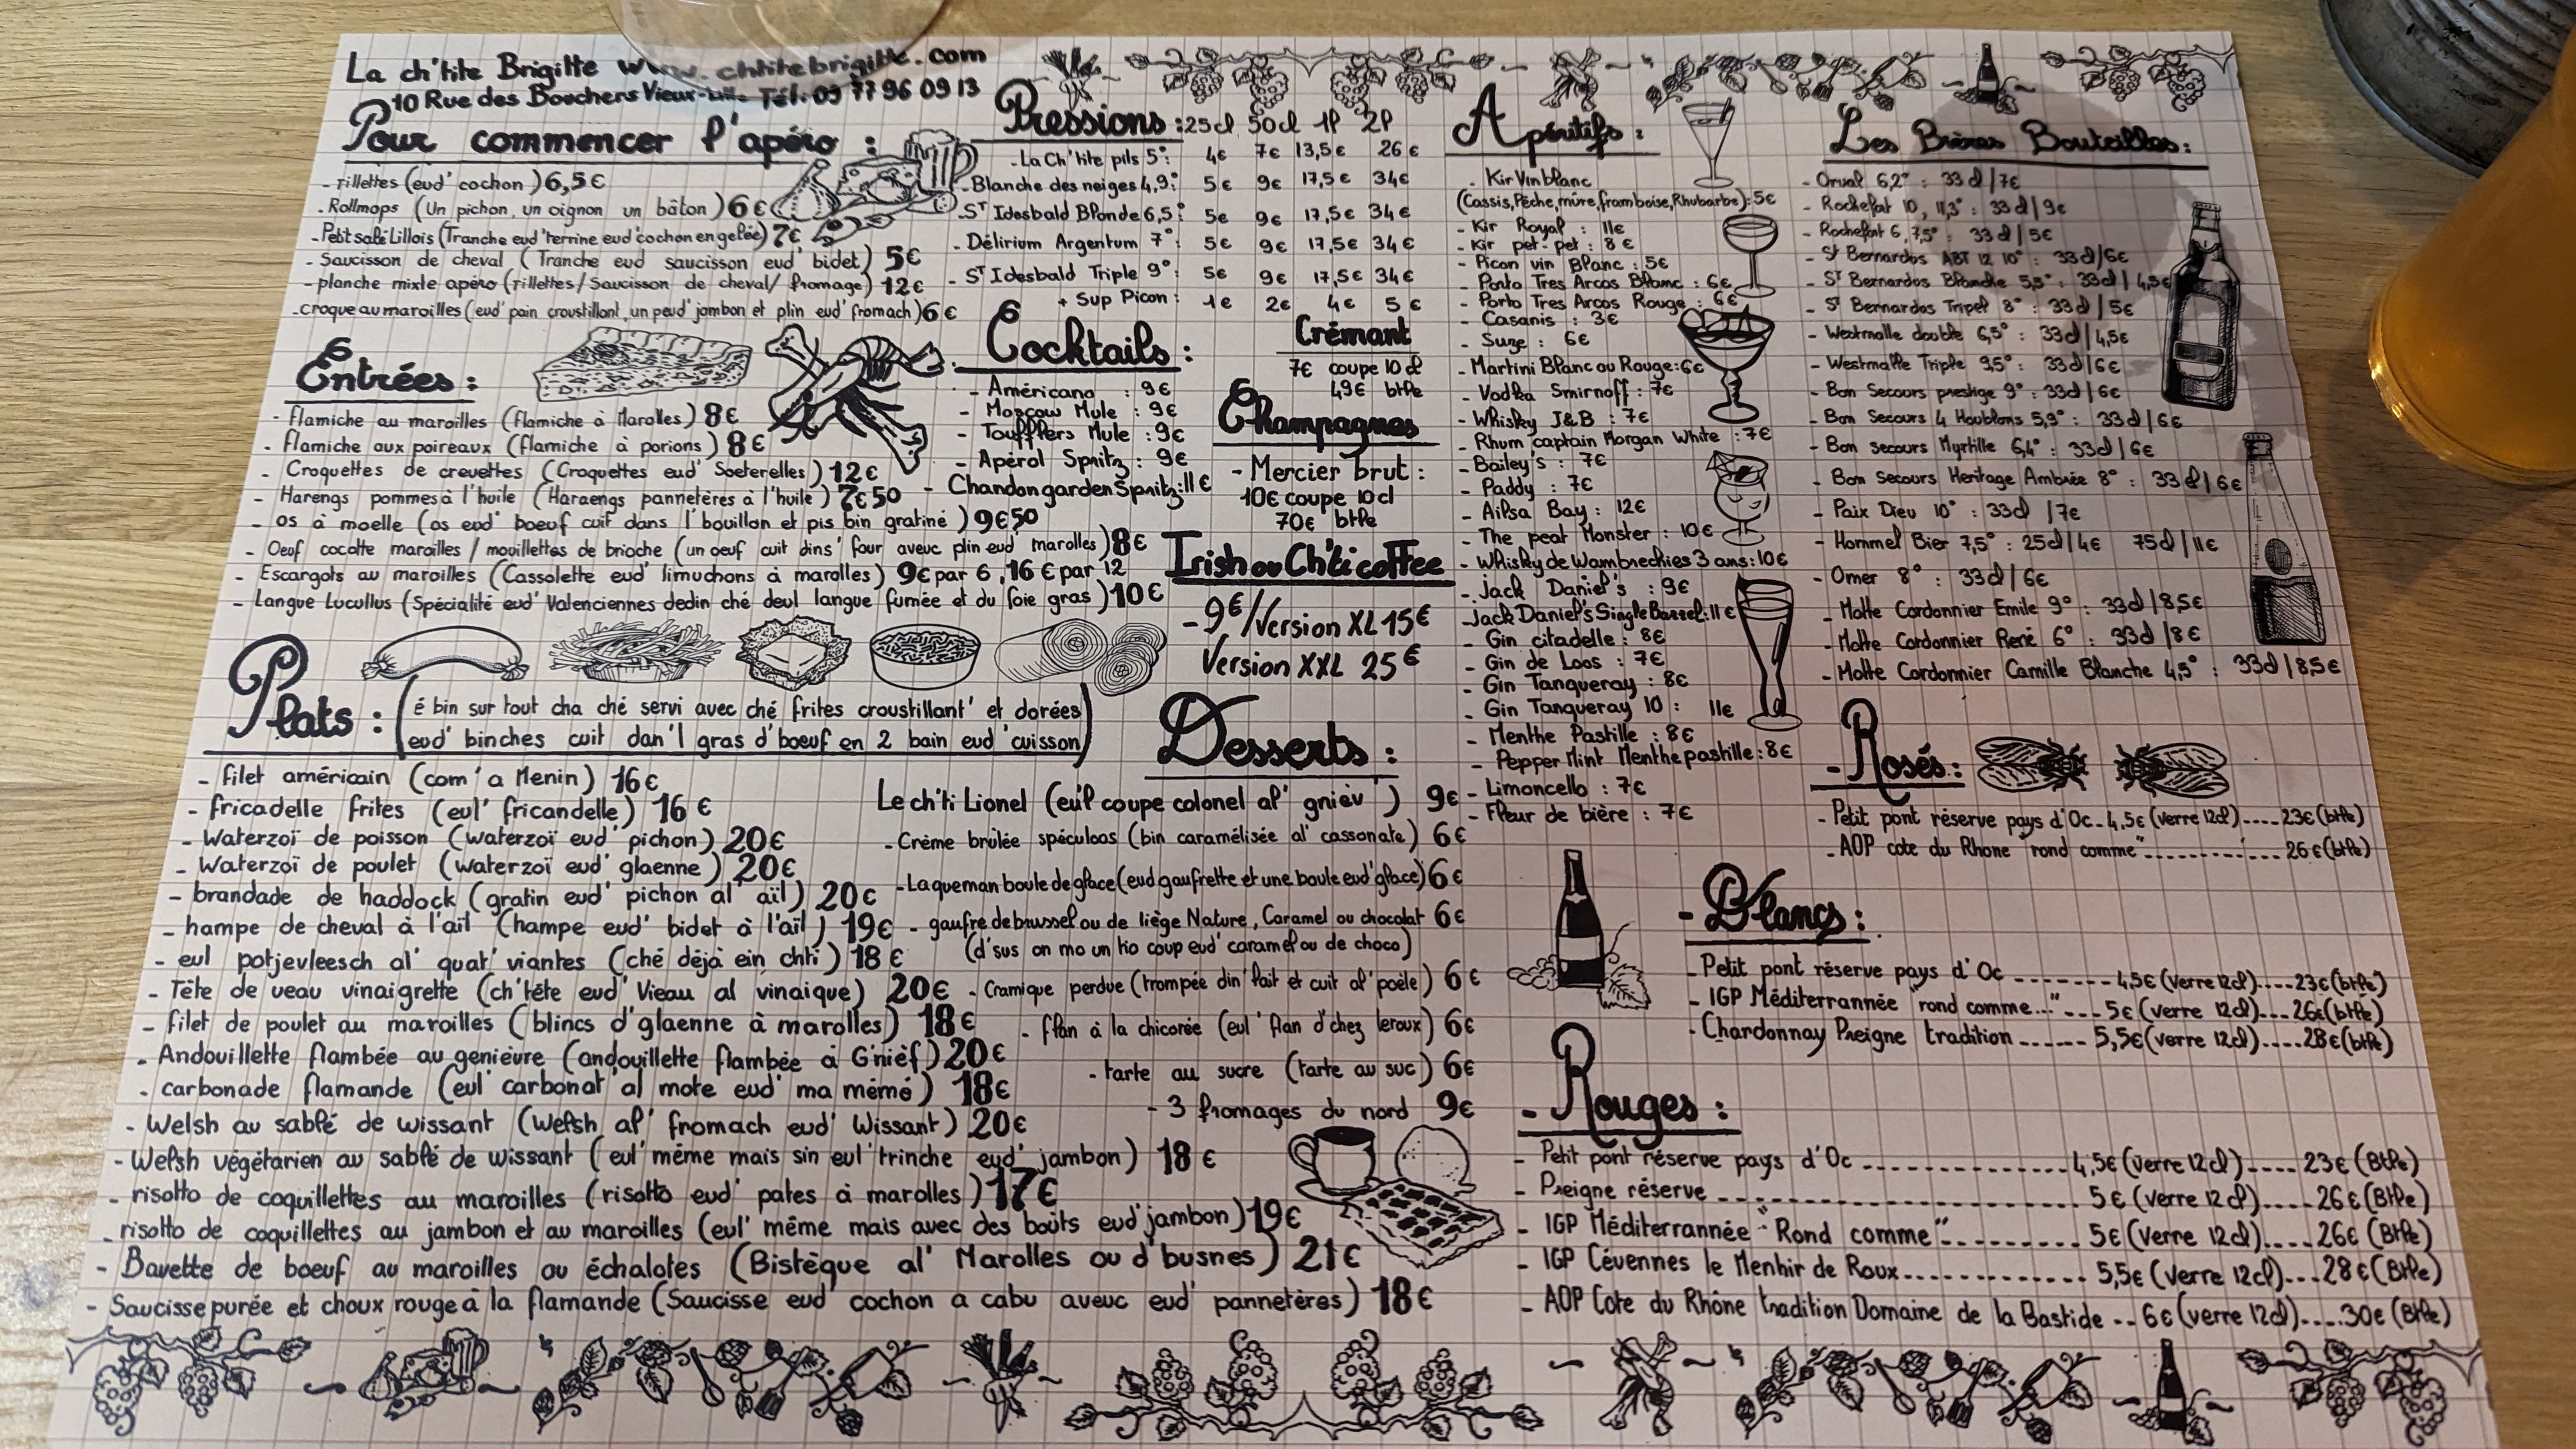 La ch'tite Brigitte www.chtitebrigitte.com
10 Rue des Bouchers Vieux-Lille Tél. 09 77 96 09 13
Pour commencer l'apéro :
- rillettes (eud' cochon) 6,5€
- Rollmops (Un pichon, un oignon un bâton) 6€
- Petit salé Lillois (Tranche eud' terrine eud' cochon en gelée) 7€
- Saucisson de cheval (Tranche eud saucisson eud' bidet) 5€
- planche mixte apéro (rillettes/Saucisson de cheval/ fromage) 12€
- croque au maroilles (eud' pain croustillant, un peud' jambon et plin eud' fromach) 6€
Entrées :
- Flamiche au maroilles (flamiche à Marolles) 8€
- Flamiche aux poireaux (flamiche à porions) 8€
- Croquettes de crevettes (Croquettes eud' Soeterelles) 12€
- Harengs pommes à l'huile (Haraengs pannetères à l'huile) 7€50
- os à moelle (os eud' boeuf cuit dans l'bouillon et pis bin gratiné) 9€50
- Oeuf cocotte maroilles / mouillettes de brioche (un oeuf cuit dins' four aveuc plin eud' marolles) 8€
- Escargots au maroilles (Cassolette eud' limuchons à marolles) 9€ par 6, 16€ par 12
- Langue Lucullus (Spécialité eud' Valenciennes dedin ché deul langue fumée et du foie gras) 10€
Plats : (é bin sur tout cha ché servi avec ché frites croustillant' et dorées
eud' binches cuit dan'l gras d'boeuf en 2 bain eud'cuisson)
- filet américain (com'a Menin) 16€
- fricadelle frites (eul' fricandelle) 16€
- Waterzoï de poisson (waterzoï eud' pichon) 20€
- Waterzoï de poulet (waterzoï eud' glaenne) 20€
- brandade de haddock (gratin eud' pichon al' aïl) 20€
- hampe de cheval à l'aïl (hampe eud' bidet à l'aïl) 19€
- eul potjevleesch al' quat' viantes (ché déjà ein chti) 18€
- Tête de veau vinaigrette (ch'tête eud' Vieau al vinaique) 20€
- filet de poulet au maroilles (blincs d'glaenne à marolles) 18€
- Andouillette flambée au genièvre (andouillette flambée à G'nièf) 20€
- carbonade flamande (eul' carbonat' al mote eud' ma mémé) 18€
- Welsh au sablé de wissant (Welsh al' fromach eud' Wissant) 20€
- Welsh végétarien au sablé de wissant (eul' même mais sin eul' trinche eud' jambon) 18€
- risotto de coquillettes au maroilles (risotto eud' pates à marolles) 17€
- risotto de coquillettes au jambon et au maroilles (eul' même mais avec des boûts eud'jambon) 19€
- Bavette de boeuf au maroilles ou échalotes (Bistèque al' Marolles ou d'busnes) 21€
- Saucisse purée et choux rouge à la flamande (Saucisse eud' cochon a cabu aveuc eud' pannetères) 18€
Pressions : 25cl 50cl 1l 2l
- La Ch'tite pils 5° : 4€ 7€ 13,5€ 26€
- Blanche des neiges 4,9° : 5€ 9€ 17,5€ 34€
- ST Idesbald Blonde 6,5° : 5€ 9€ 17,5€ 34€
- Délirium Argentum 7° : 5€ 9€ 17,5€ 34€
- ST Idesbald Triple 9° : 5€ 9€ 17,5€ 34€
+ Sup Picon : 1€ 2€ 4€ 5€
Cocktails :
- Américano : 9€
- Moscow Mule : 9€
- Toufflers Mule : 9€
- Apérol Spritz : 9€
- Chandon garden Spritz : 11€
Crémant
7€ coupe 10cl
49€ btlle
Champagnes
- Mercier brut :
10€ coupe 10cl
70€ btlle
Irish ou Ch'ti coffee
- 9€/Version XL 15€
Version XXL 25€
Desserts :
Le ch'ti Lionel (eul' coupe colonel al' gniév') 9€
- Crème brûlée spéculoos (bin caramélisée al' cassonate) 6€
- Laqueman boule de glace (eud gaufrette et une boule eud' glace) 6€
- gaufre de brussel ou de liège Nature, Caramel ou chocolat 6€
(d'sus on mo un tio coup eud' caramel ou de choco)
- Cramique perdue (trompée din' lait et cuit al' poële) 6€
- flan à la chicorée (eul' flan d'chez leroux) 6€
- tarte au sucre (tarte au suc) 6€
- 3 fromages du nord 9€
Apéritifs :
- Kir Vin blanc
(Cassis, Pêche, mûre, framboise, Rhubarbe) : 5€
- Kir Royal : 11€
- Kir pet-pet : 8€
- Picon vin Blanc : 5€
- Porto Tres Arcos Blanc : 6€
- Porto Tres Arcos Rouge : 6€
- Casanis : 3€
- Suze : 6€
- Martini Blanc ou Rouge : 6€
- Vodka Smirnoff : 7€
- Whisky J&B : 7€
- Rhum captain Morgan White : 7€
- Bailey's : 7€
- Paddy : 7€
- Ailsa Bay : 12€
- The peat Monster : 10€
- Whisky de Wambrechies 3 ans : 10€
- Jack Daniel's : 9€
- Jack Daniel's Single Barrel : 11€
- Gin citadelle : 8€
- Gin de Loos : 7€
- Gin Tanqueray : 8€
- Gin Tanqueray 10 : 11€
- Menthe Pastille : 8€
- Pepper Mint Menthe pastille : 8€
- Limoncello : 7€
- Fleur de bière : 7€
Les Bières Bouteilles :
- Orval 6,2° : 33cl/7€
- Rochefort 10, 11,3° : 33cl/9€
- Rochefort 6, 7,5° : 33cl/5€
- St Bernardus ABT 12 10° : 33cl/6€
- ST Bernardos Blanche 5,5° : 33cl/4,5€
- ST Bernardos Tripel 8° : 33cl/5€
- Westmalle double 6,5° : 33cl/4,5€
- Westmalle Triple 9,5° : 33cl/6€
- Bon Secours prestige 9° : 33cl/6€
- Bon Secours 4 Houblons 5,9° : 33cl/6€
- Bon secours Myrtille 6,4° : 33cl/6€
- Bon Secours Heritage Ambrée 8° : 33cl/6€
- Paix Dieu 10° : 33cl /7€
- Hommel Bier 7,5° : 25cl/4€ 75cl/11€
- Omer 8° : 33cl/6€
- Motte Cordonnier Emile 9° : 33cl/8,5€
- Motte Cordonnier René 6° : 33cl/8€
- Motte Cordonnier Camille Blanche 4,5° : 33cl/8,5€
- Rosés :
- Petit pont réserve pays d'Oc - 4,5€ (verre 12cl) ---- 23€ (btlle)
- AOP cote du Rhone "rond comme" ---------- 26€ (btlle)
- Blancs :
- Petit pont réserve pays d'Oc ------- 4,5€ (verre 12cl) ---- 23€ (btlle)
- IGP Méditerrannée "rond comme..." --- 5€ (verre 12cl) --- 26€ (btlle)
- Chardonnay Preigne tradition ------ 5,5€ (verre 12cl) ---- 28€ (btlle)
- Rouges :
- Petit pont réserve pays d'Oc ---------- 4,5€ (verre 12cl) ---- 23€ (Btlle)
- Preigne réserve ---------- 5€ (verre 12cl) ---- 26€ (Btlle)
- IGP Méditerrannée "Rond comme" ---------- 5€ (Verre 12cl) ---- 26€ (Btlle)
- IGP Cévennes le Menhir de Roux ---------- 5,5€ (Verre 12cl) --- 28€ (Btlle)
- AOP Cote du Rhône tradition Domaine de la Bastide -- 6€ (verre 12cl) ---- 30€ (Btlle)